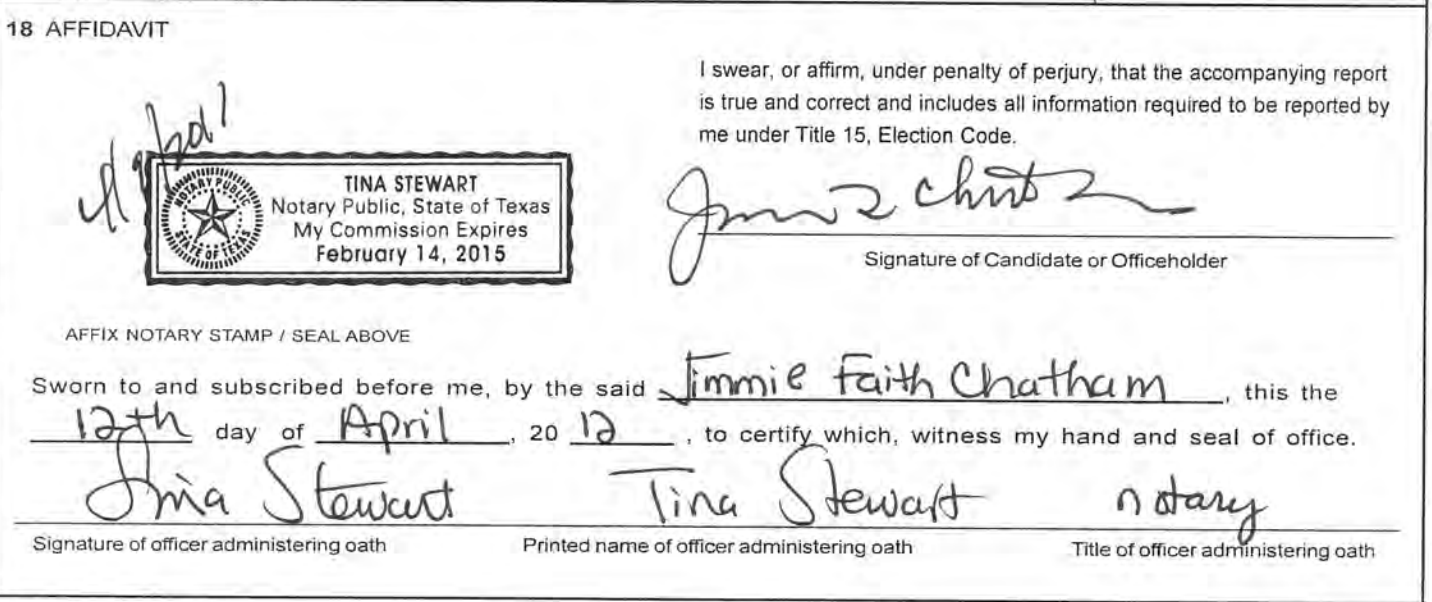 18 AFFIDAVIT
I swear, or affirm, under penalty of perjury, that the accompanying report
is true and correct and includes all information required to be reported by
me under Title 15, Election Code.
NOTARY PUBLIC
STATE OF TEXAS
TINA STEWART
Notary Public, State of Texas
My Commission Expires
February 14, 2015
Signature of Candidate or Officeholder
AFFIX NOTARY STAMP / SEAL ABOVE
Sworn to and subscribed before me, by the said Jimmie Faith Chatham, this the
12th day of April, 20 12, to certify which, witness my hand and seal of office.
Tina Stewart Tina Stewart notary
Signature of officer administering oath Printed name of officer administering oath Title of officer administering oath